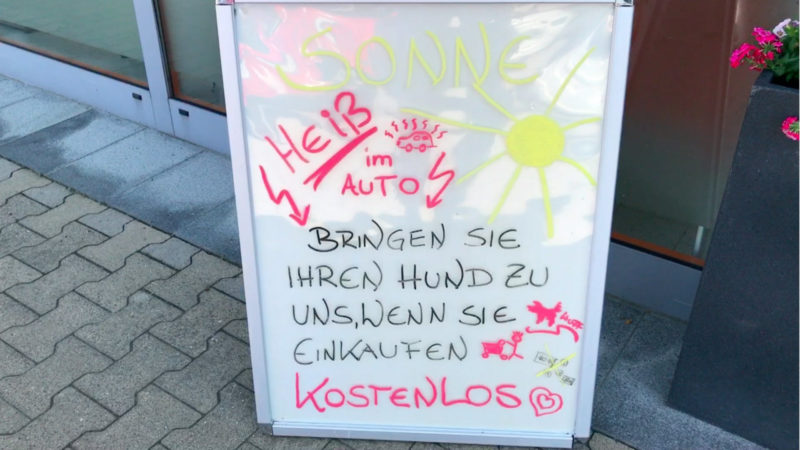 SONNE
HEIß
im
AUTO
BRINGEN SIE
IHREN HUND ZU
UNS, WENN SIE
EINKAUFEN
KOSTENLOS